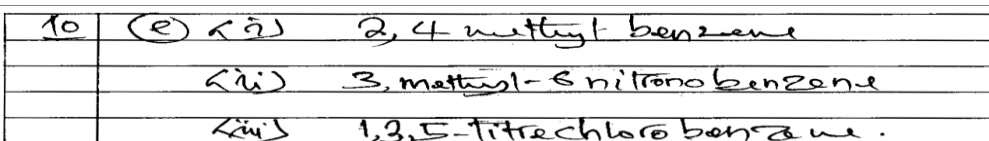 10 (e) (i) 2, 4 methyl benzene
(ii) 3, methyl-6 nitronobenzene
(iii) 1,3,5-titrechlorobenzene.